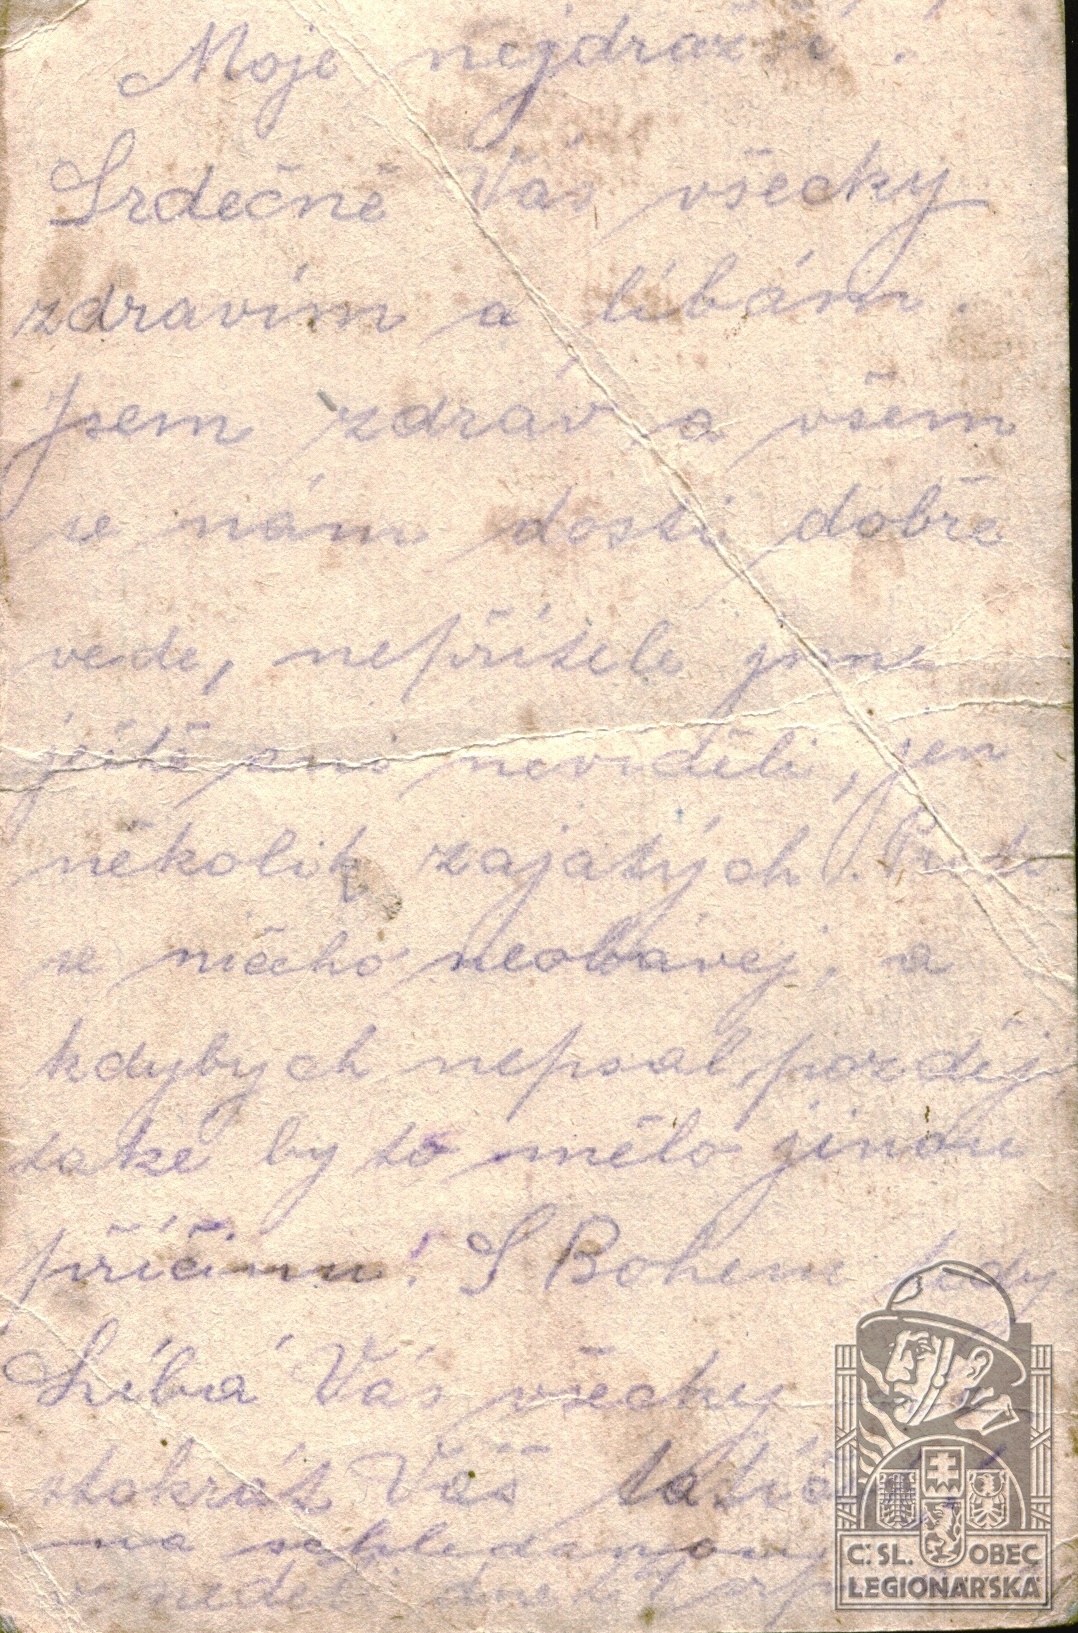 Moje nejdražší.
Srdečně Vás všecky
zdravím a líbám.
Jsem zdráv a všem
se nám dosti dobře
vede, nepřítele jsme
ještě ani neviděli, jen
několik zajatých. Proto
se ničeho neobávej, a
kdybych nepsal, později
také by to mělo jinou
příčinu! S Bohem tedy
Líbá Vás všecky
stokrát Váš tatíč
na schledanou
v neděli dne
Č.SL. OBEC
LEGIONÁŘSKÁ